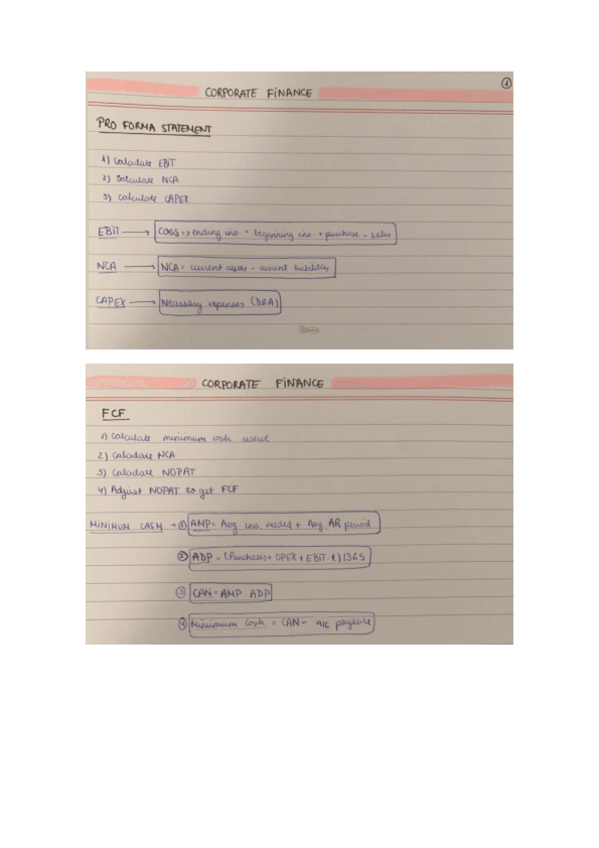 ①
CORPORATE FINANCE
PRO FORMA STATEMENT
1) Calculate EBIT
2) Calculate NCA
3) Calculate CAPEX
EBIT → COGS => ending inv. = beginning inv. + purchase - sales
NCA → NCA = current assets - current liabilities
CAPEX → Necessary expenses (D&A)
CORPORATE FINANCE
FCF
1) Calculate minimum cash
2) Calculate NCA
3) Calculate NOPAT
4) Adjust NOPAT to get FCF
MINIMUM CASH → ① AMP = Avg. inv. needed + Avg. AR period
② ADP = (Purchases + OPEX + EBIT · t) / 365
③ CAN = AMP · ADP
④ Minimum cash = CAN - a/c payable